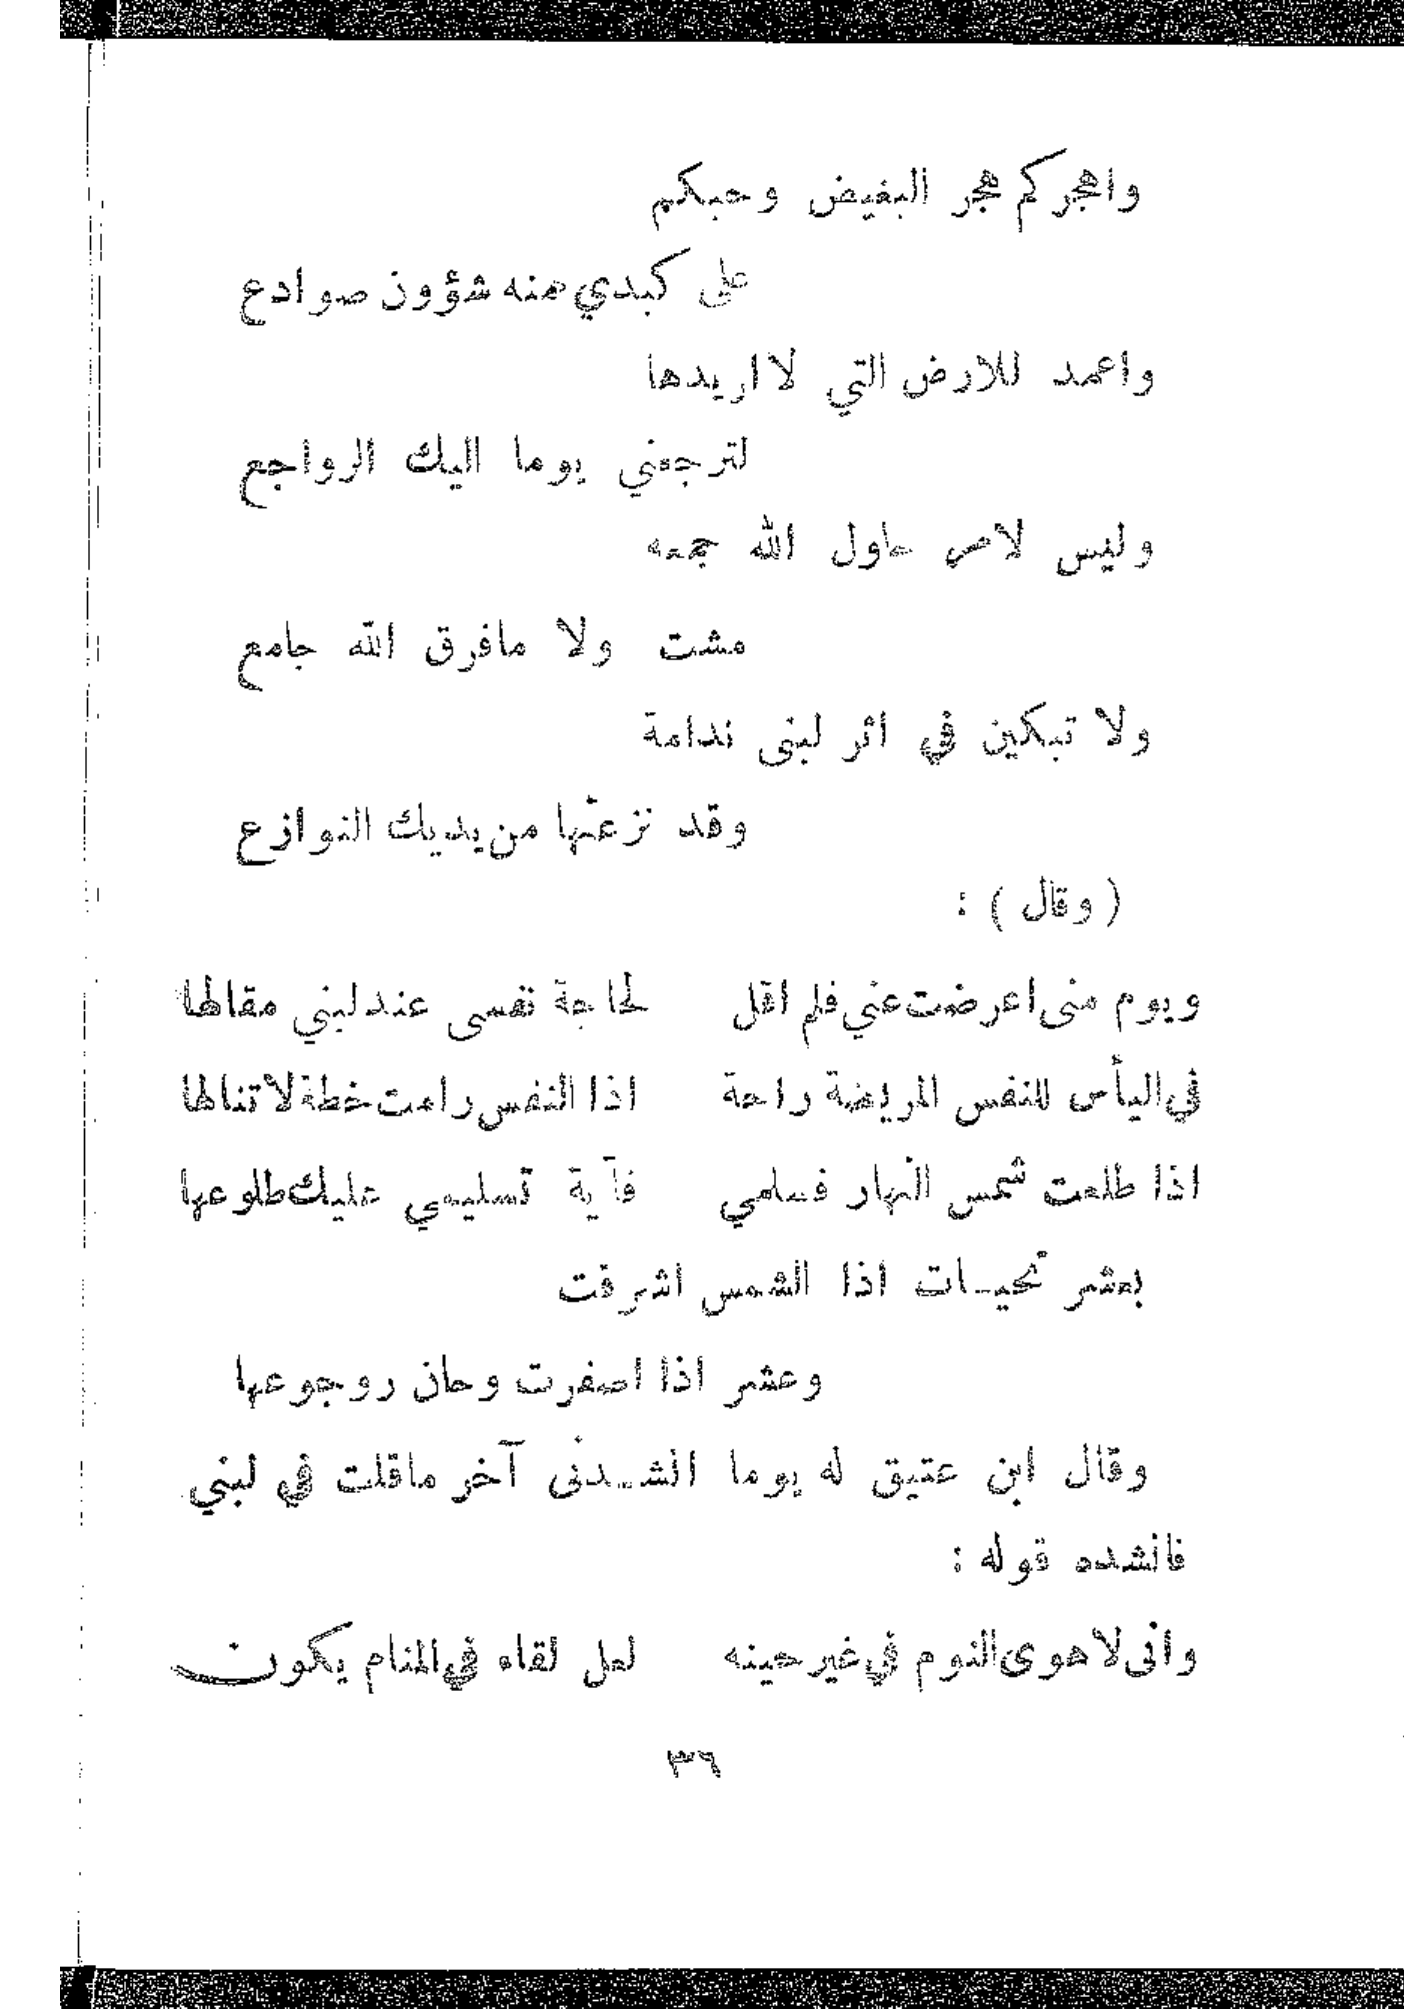 واهجركم هجر البغيض وحبكم
على كبدي منه شؤون صوادع
واعمد للارض التي لا اريدها
لترجعني يوما اليك الرواجع
وليس لامر حاول الله جمعه
مشت ولا مافرق الله جامع
ولا تبكين في اثر لبنى ندامة
وقد نزعتها من يديك النوازع
( وقال ) :
ويوم منى اعرضت عني فلم اقل لحاجة نفسى عند لبني مقالها
في اليأس للنفس المريضة راحة اذا النفس رامت خطة لا تنالها
اذا طلعت شمس النهار فسلمي فآية تسليمي عليك طلوعها
بعشر تحيات اذا الشمس اشرقت
وعشر اذا اصفرت وحان روجوعها
وقال ابن عتيق له يوما انشدنى آخر ماقلت في لبني
فانشده قوله :
وانى لاهوى النوم في غير حينه لعل لقاء في المنام يكون
٣٦